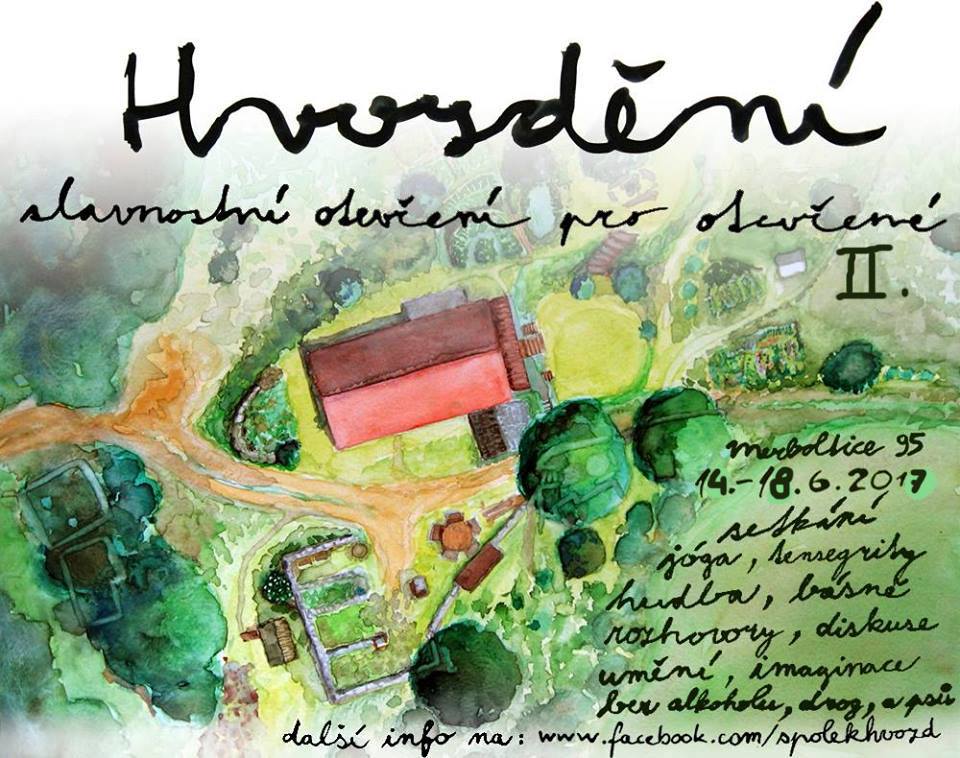 Hvozdění
slavnostní otevření pro otevřené
II.
Merboltice 95
14.-18.6.2017
setkání
jóga, tensegrity
hudba, básně
rozhovory, diskuse
umění, imaginace
bez alkoholu, drog, a psů
další info na: www.facebook.com/spolekhvozd